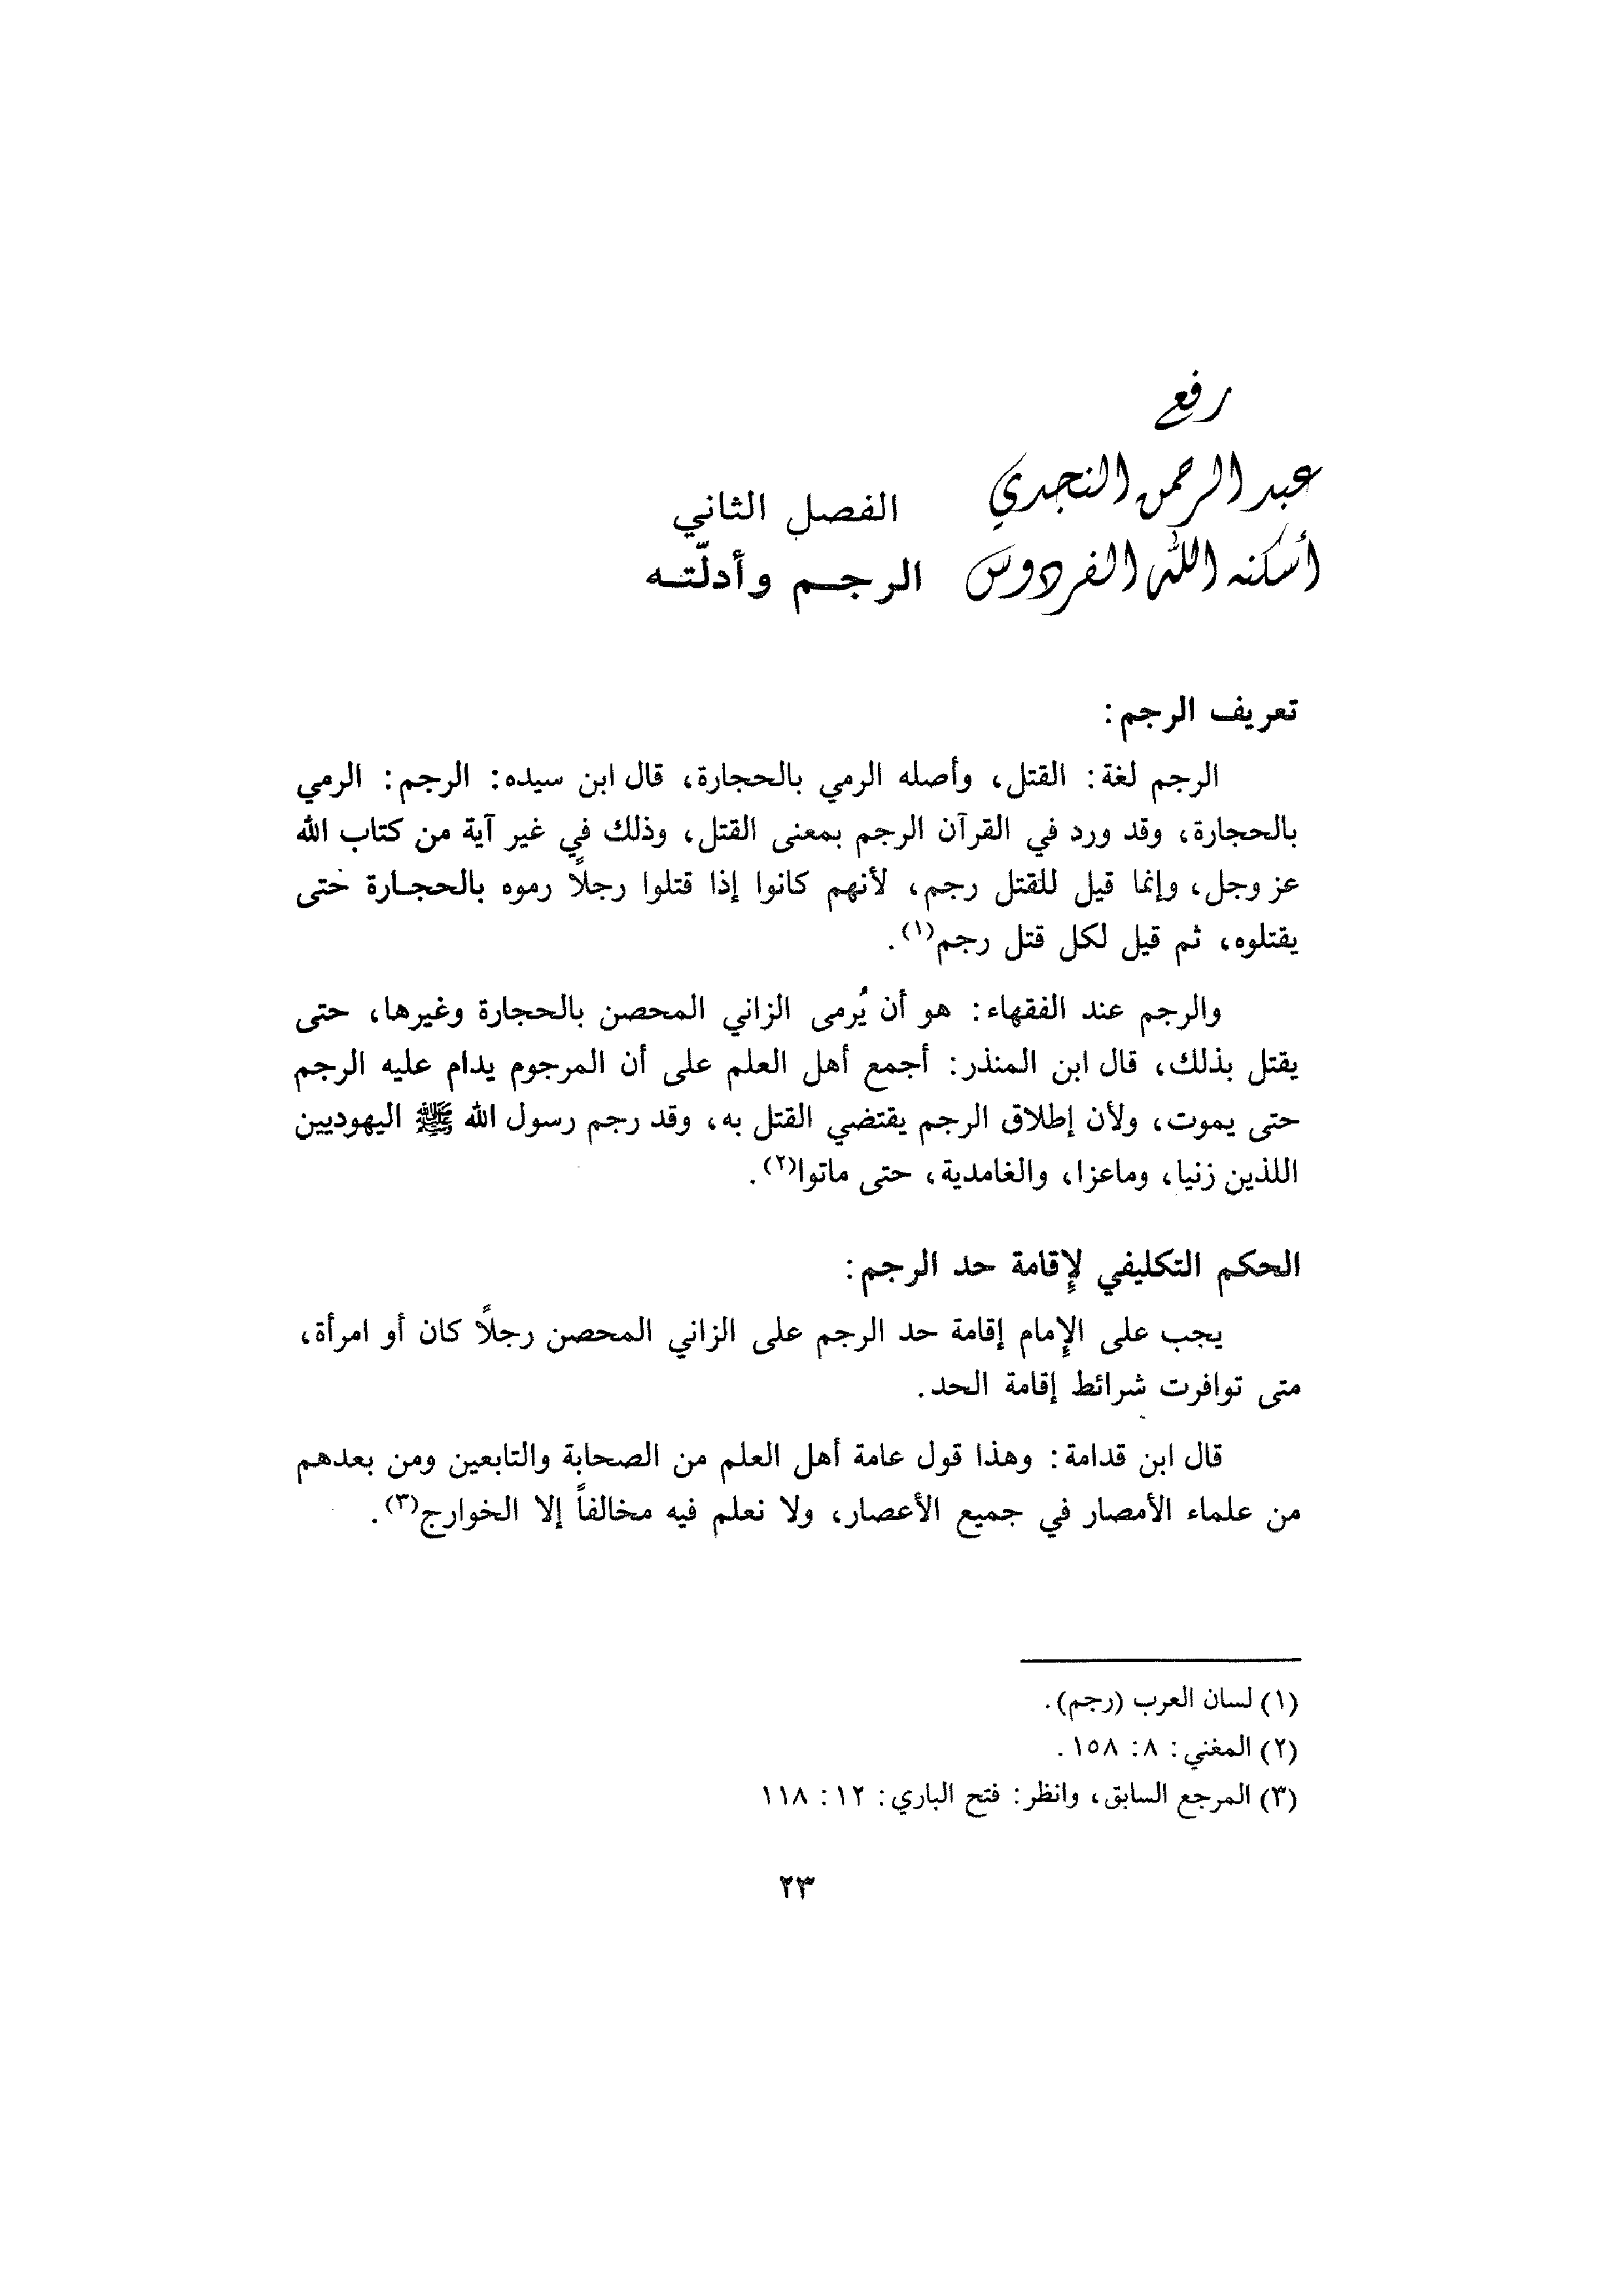 رفع
عبد الرحمن النجدي
أسكنه الله الفردوس
الفصل الثاني
الرجم وأدلّته
تعريف الرجم:
الرجم لغة: القتل، وأصله الرمي بالحجارة، قال ابن سيده: الرجم: الرمي
بالحجارة، وقد ورد في القرآن الرجم بمعنى القتل، وذلك في غير آية من كتاب الله
عز وجل، وإنما قيل للقتل رجم، لأنهم كانوا إذا قتلوا رجلاً رموه بالحجارة حتى
يقتلوه، ثم قيل لكل قتل رجم(١).
والرجم عند الفقهاء: هو أن يُرمى الزاني المحصن بالحجارة وغيرها، حتى
يقتل بذلك، قال ابن المنذر: أجمع أهل العلم على أن المرجوم يدام عليه الرجم
حتى يموت، ولأن إطلاق الرجم يقتضي القتل به، وقد رجم رسول الله ﷺ اليهوديين
اللذين زنيا، وماعزا، والغامدية، حتى ماتوا(٢).
الحكم التكليفي لإقامة حد الرجم:
يجب على الإمام إقامة حد الرجم على الزاني المحصن رجلاً كان أو امرأة،
متى توافرت شرائط إقامة الحد.
قال ابن قدامة: وهذا قول عامة أهل العلم من الصحابة والتابعين ومن بعدهم
من علماء الأمصار في جميع الأعصار، ولا نعلم فيه مخالفاً إلا الخوارج(٣).
(١) لسان العرب (رجم).
(٢) المغني: ٨: ١٥٨.
(٣) المرجع السابق، وانظر: فتح الباري: ١٢: ١١٨
٢٣